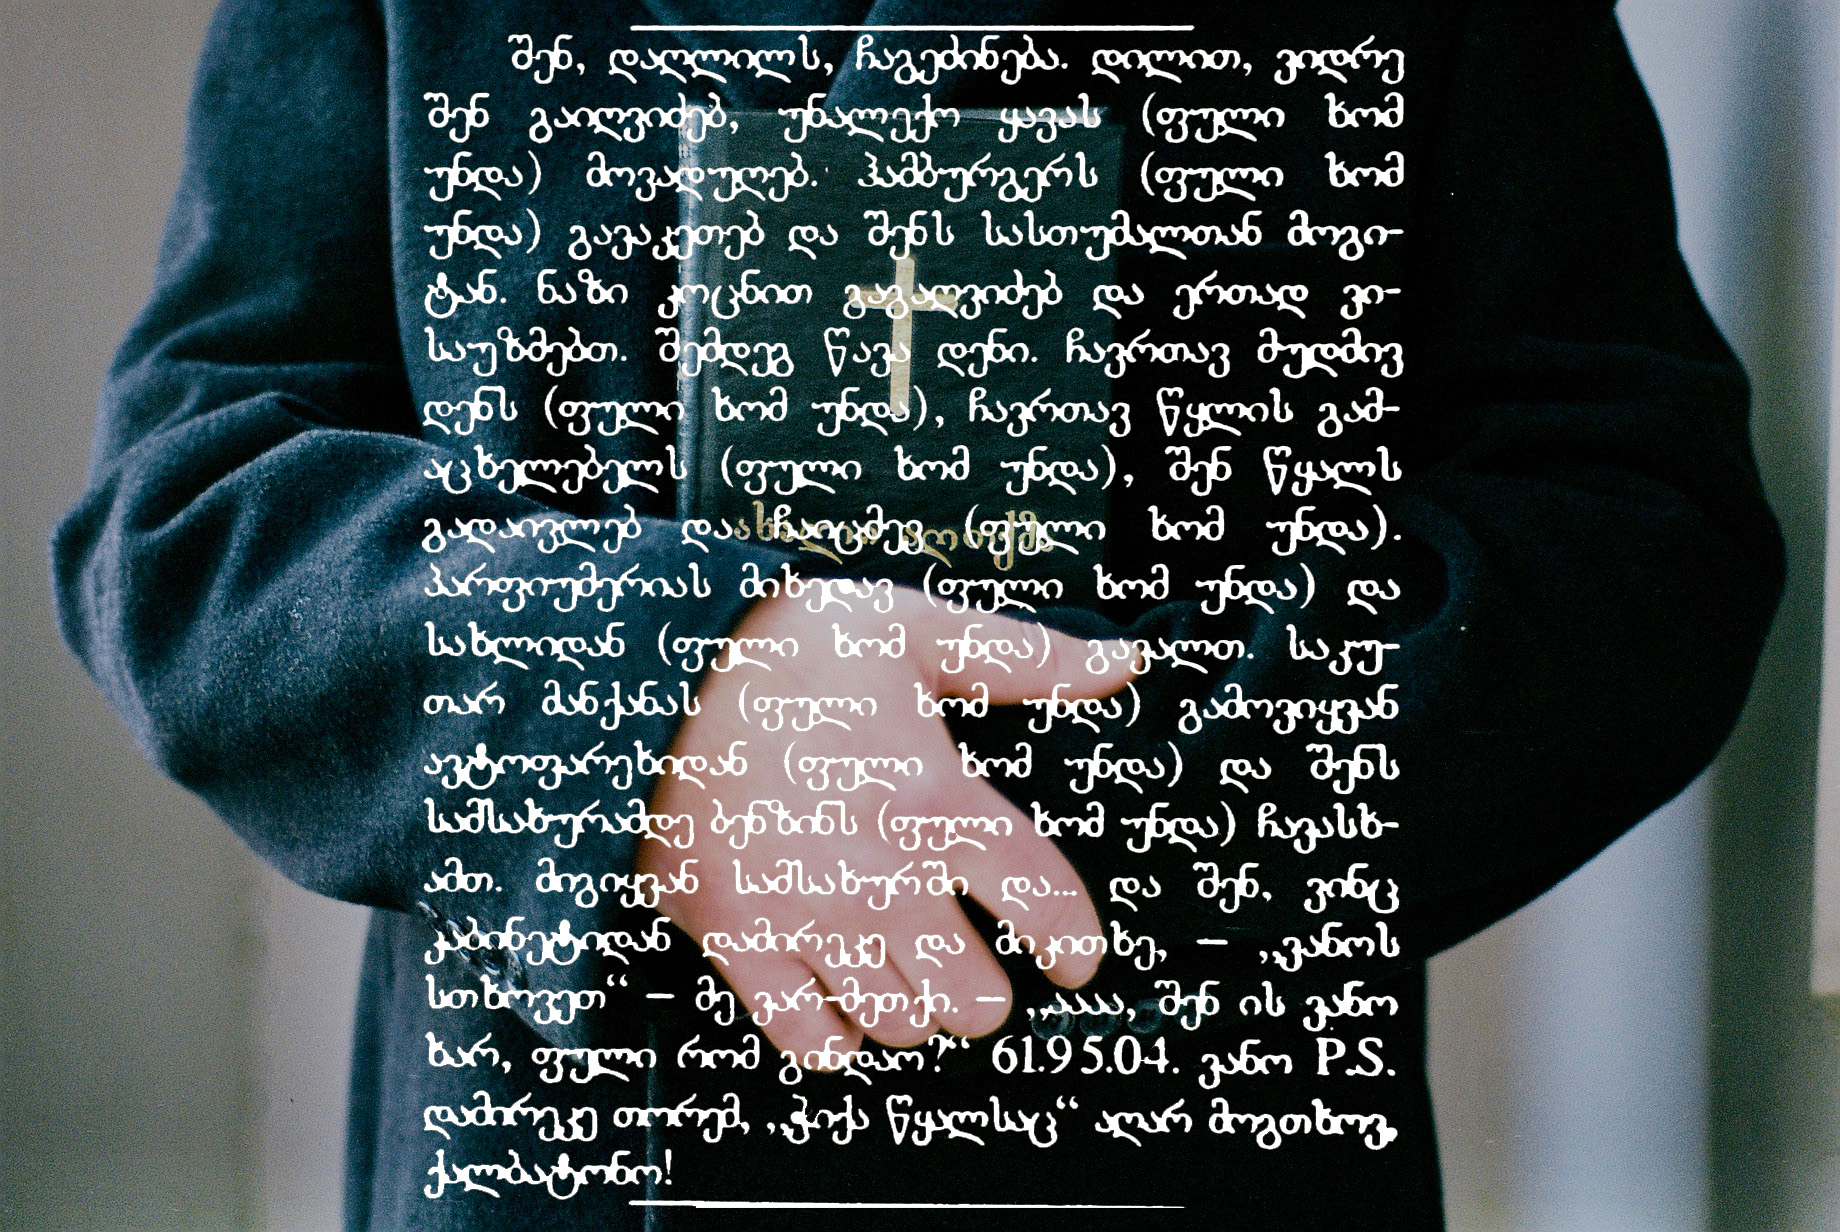 შენ, დაღლილს, ჩაგეძინება. დილით, ვიდრე
შენ გაიღვიძებ, უნალექო ყავას (ფული ხომ
უნდა) მოვადუღებ. ჰამბურგერს (ფული ხომ
უნდა) გავაკეთებ და შენს სასთუმალთან მოგი-
ტან. ნაზი კოცნით გაგაღვიძებ და ერთად ვი-
საუზმებთ. შემდეგ წავა დენი. ჩავრთავ მუდმივ
დენს (ფული ხომ უნდა), ჩავრთავ წყლის გამ-
აცხელებელს (ფული ხომ უნდა), შენ წყალს
გადაივლებ და ჩაიცმევ (ფული ხომ უნდა).
პარფიუმერიას მიხედავ (ფული ხომ უნდა) და
სახლიდან (ფული ხომ უნდა) გავალთ. საკუ-
თარ მანქანას (ფული ხომ უნდა) გამოვიყვან
ავტოფარეხიდან (ფული ხომ უნდა) და შენს
სამსახურამდე ბენზინს (ფული ხომ უნდა) ჩავასხ-
ამთ. მიგიყვან სამსახურში და... და შენ, ვინც
კაბინეტიდან დამირეკე და მიკითხე, – „ვანოს
სთხოვეთ“ – მე ვარ-მეთქი. – „აააა, შენ ის ვანო
ხარ, ფული რომ გინდაო?“ 61.95.04. ვანო P.S.
დამირეკე თორემ, „ჭიქა წყალსაც“ აღარ მოგთხოვ,
ქალბატონო!
ახალი აღთქმა